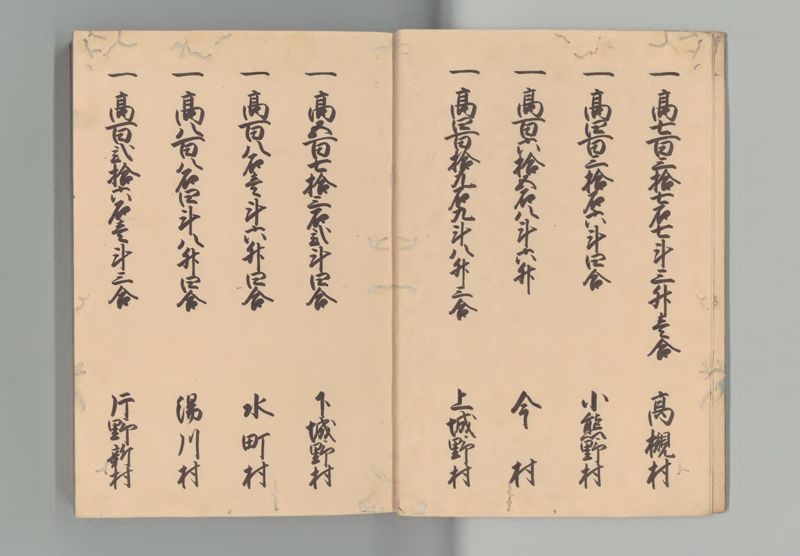 一高七百三拾七石七斗三升壱合 高槻村
一高四百三拾石六斗四合 小熊野村
一高百六拾五石八斗六升 今村
一高四百拾九石九斗八升三合 上城野村
一高五百七拾三石弐斗四合 下城野村
一高百八石壱斗六升四合 水町村
一高八百八石四斗八升四合 湯川村
一高百弐拾六石壱斗三合 片野新村